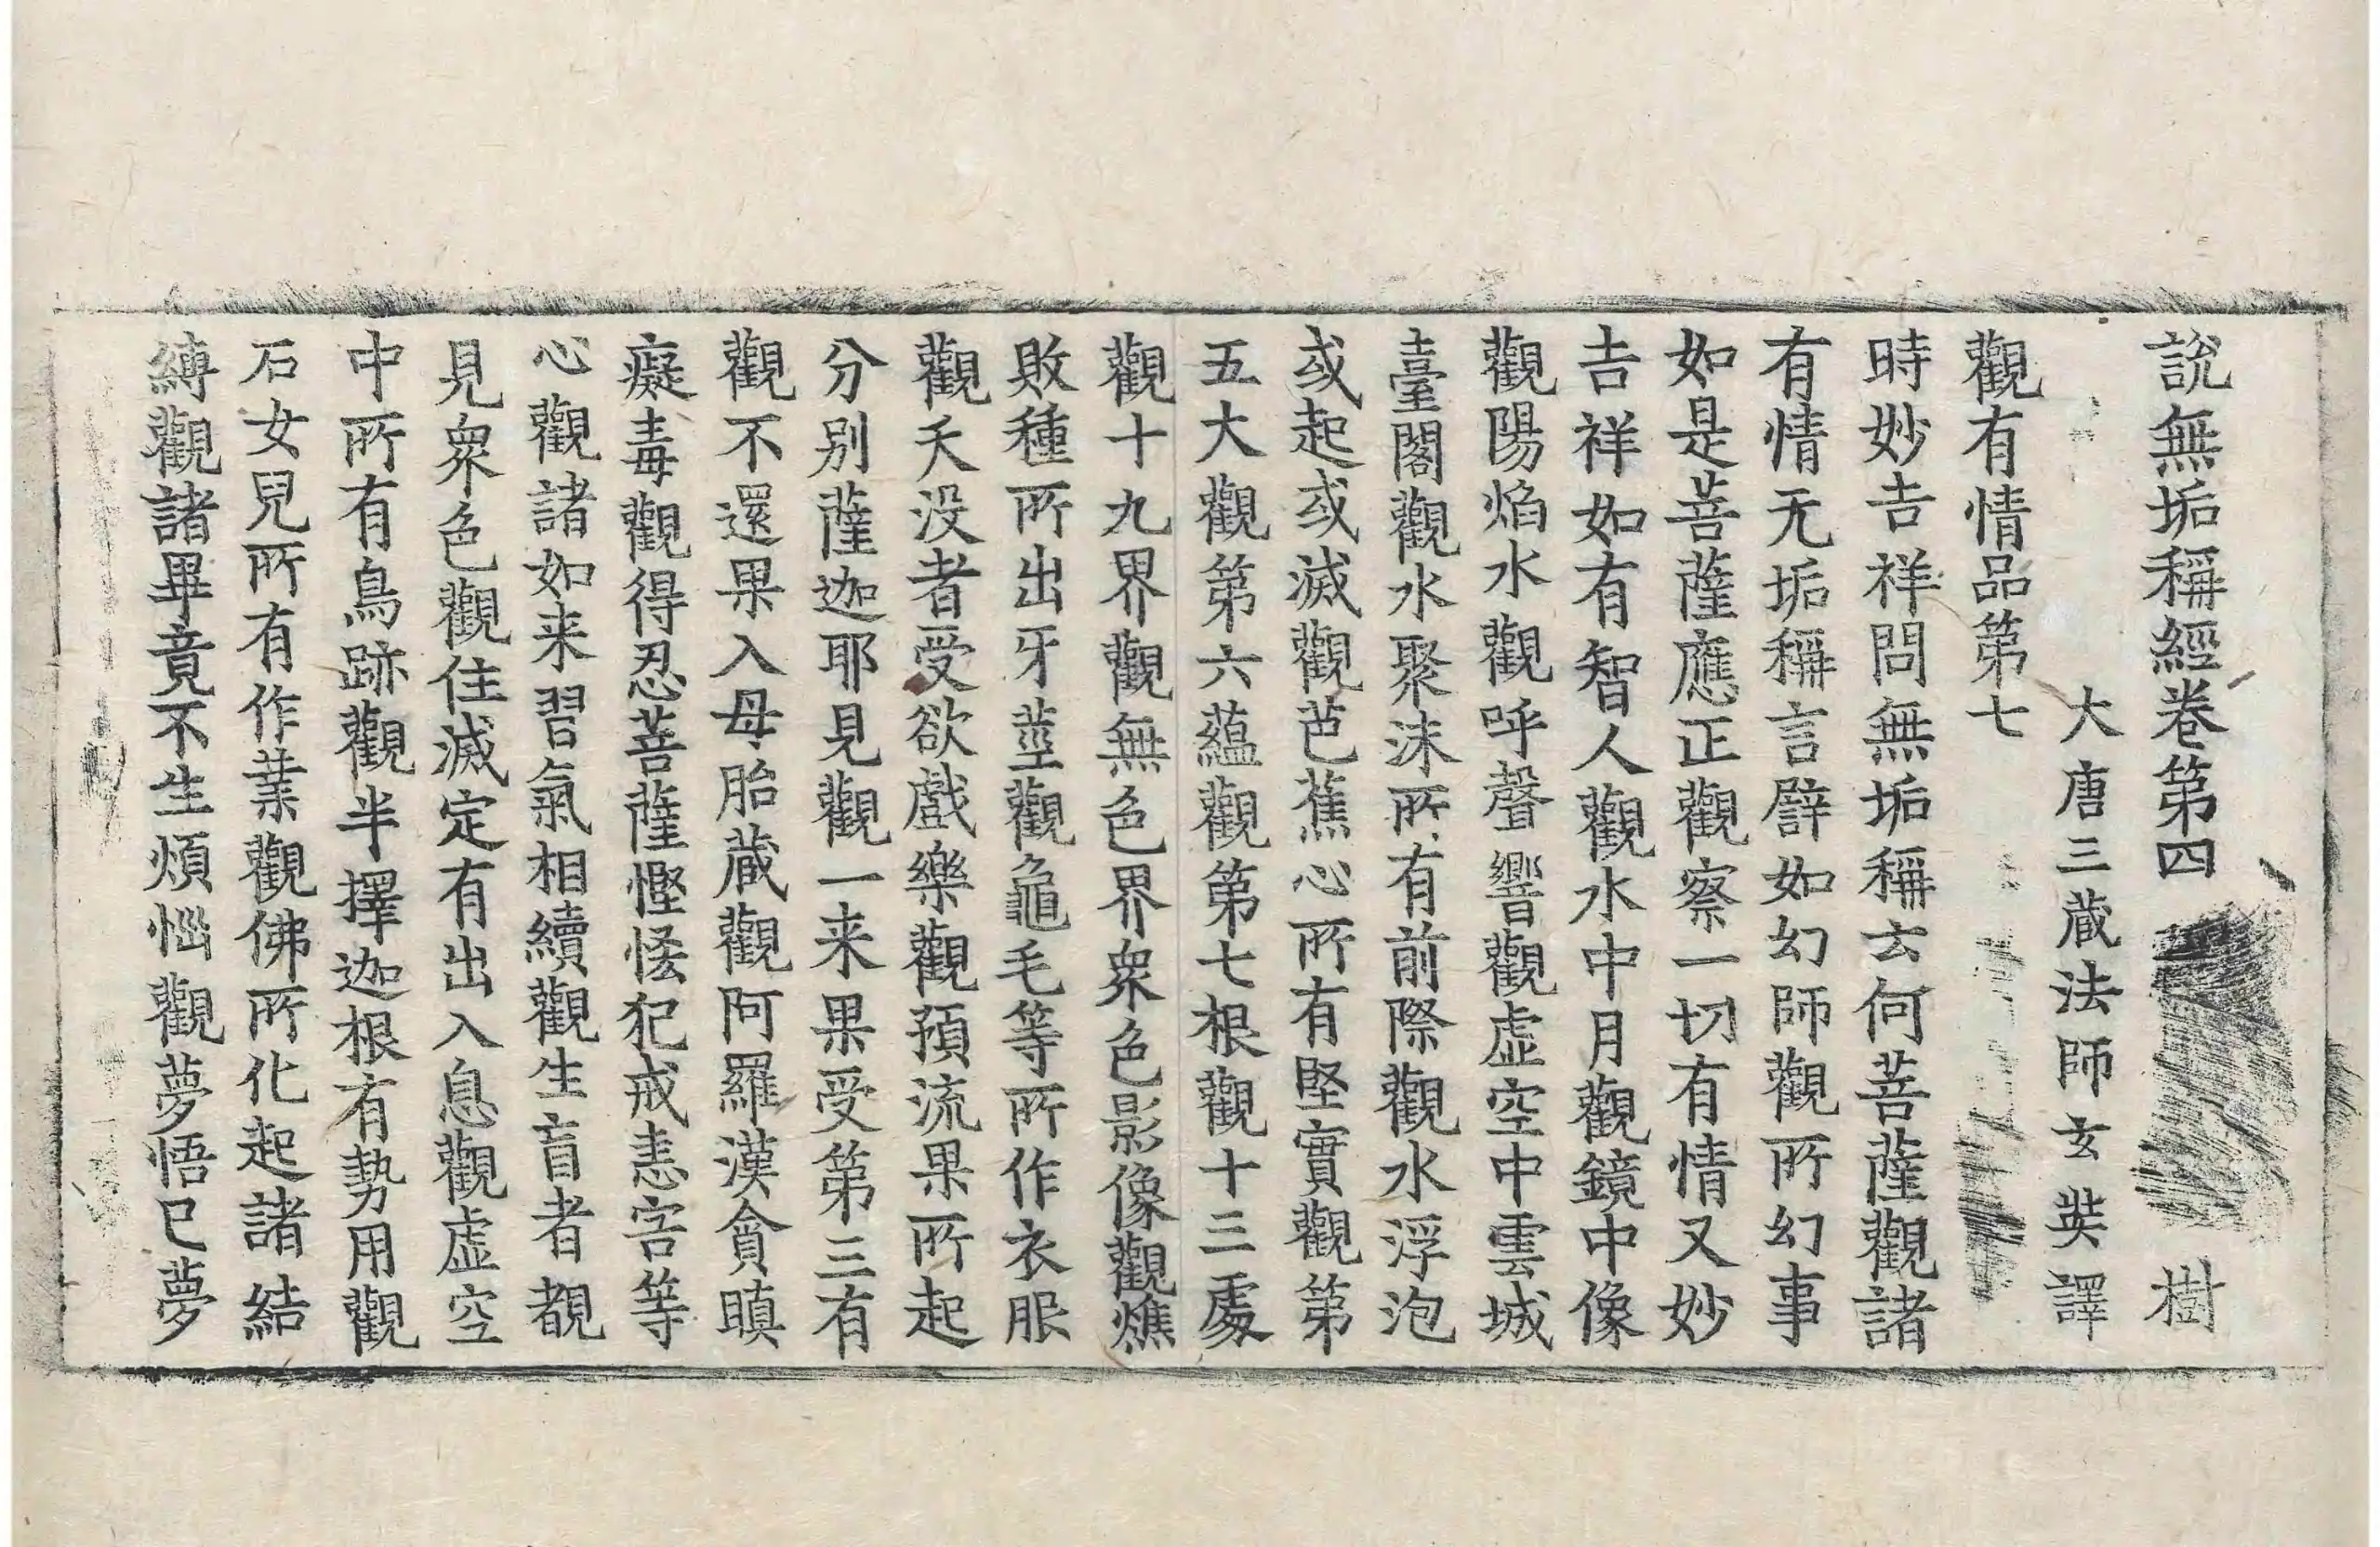 說無垢稱經卷第四 樹
大唐三蔵法師玄奘譯
觀有情品第七
時妙吉祥問無垢稱云何菩薩觀諸
有情无垢稱言譬如幻師觀所幻事
如是菩薩應正觀察一切有情又妙
吉祥如有智人觀水中月觀鏡中像
觀陽焰水觀呼聲響觀虛空中雲城
臺閣觀水聚沫所有前際觀水浮泡
或起或滅觀芭蕉心所有堅實觀第
五大觀第六蘊觀第七根觀十三處
觀十九界觀無色界衆色影像觀燋
敗種所出牙莖觀龜毛等所作衣服
觀夭没者受欲戲樂觀預流果所起
分別薩迦耶見觀一来果受第三有
觀不還果入母胎蔵觀阿羅漢貪瞋
癡毒觀得忍菩薩慳悋犯戒恚害等
心觀諸如来習氣相續觀生盲者覩
見衆色觀住滅定有出入息觀虛空
中所有鳥跡觀半擇迦根有勢用觀
石女兒所有作業觀佛所化起諸結
縛觀諸畢竟不生煩惱觀夢悟已夢